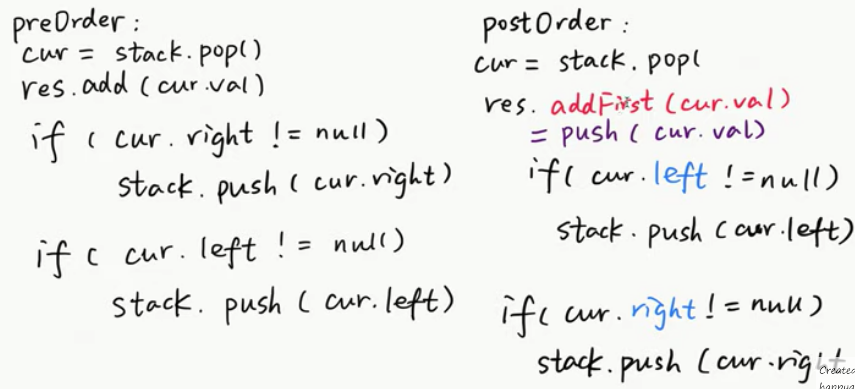 preOrder :
cur = stack.pop()
res.add (cur.val)
if ( cur.right != null)
stack.push (cur.right)
if ( cur.left != null)
stack.push (cur.left)
postOrder :
cur = stack.pop(
res. addFirst (cur.val)
= push ( cur.val)
if( cur.left != null)
stack.push (cur.left)
if( cur.right != null)
stack.push (cur.right
Created